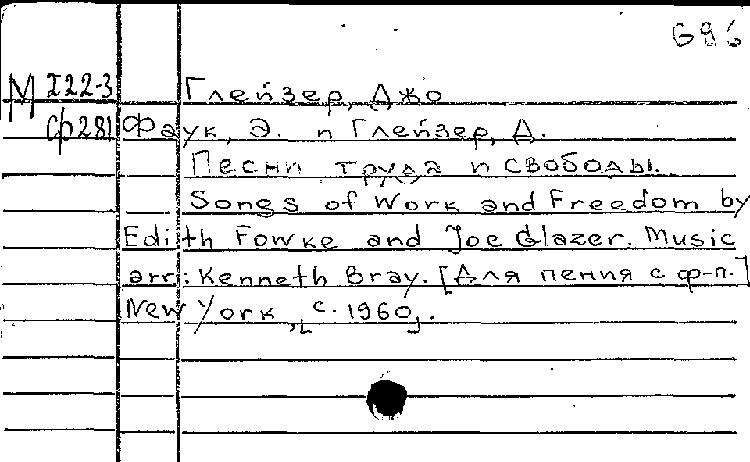 696
М I22-3 Глейзер, Джо
Ф281 Фаук, Э. и Глейзер, Д.
Песни труда и свободы.
Songs of Work and Freedom by
Edith Fowke and Joe Glazer. Music
arr: Kenneth Bray. [Для пения с ф-п.]
New York, [c. 1960].